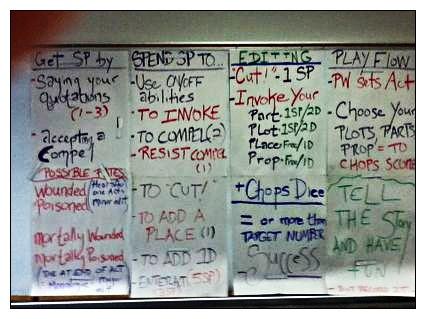 Get SP by
- Saying your
quotations
(1-3)
- accepting a
Compel
POSSIBLE FATES
Wounded
Poisoned
mortally Wounded
mortally Poisoned
AT END OF ACT
SPEND SP TO...
- Use ON/OFF
abilities
- TO INVOKE
- TO COMPEL (2)
- RESIST COMPEL
(1)
- TO "CUT!"
- TO ADD A
PLACE (1)
- TO ADD 1D
(5SP)
EDITING
"Cut!" - 1 SP
- Invoke Your
Part - 1SP/2D
Plot - 1SP/2D
Place - Free/1D
Prop - Free/1D
+ Chops Dice
= or more than
TARGET NUMBER
= Success
PLAY FLOW
- PW sets Act
- Choose Your
PLOTS, PARTS
PROP = TO
CHOPS SCORE
TELL
THE Story
AND HAVE
FUN